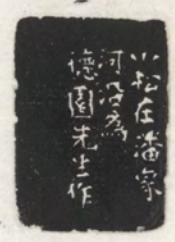 小松在潘家
河沿為
德園先生作